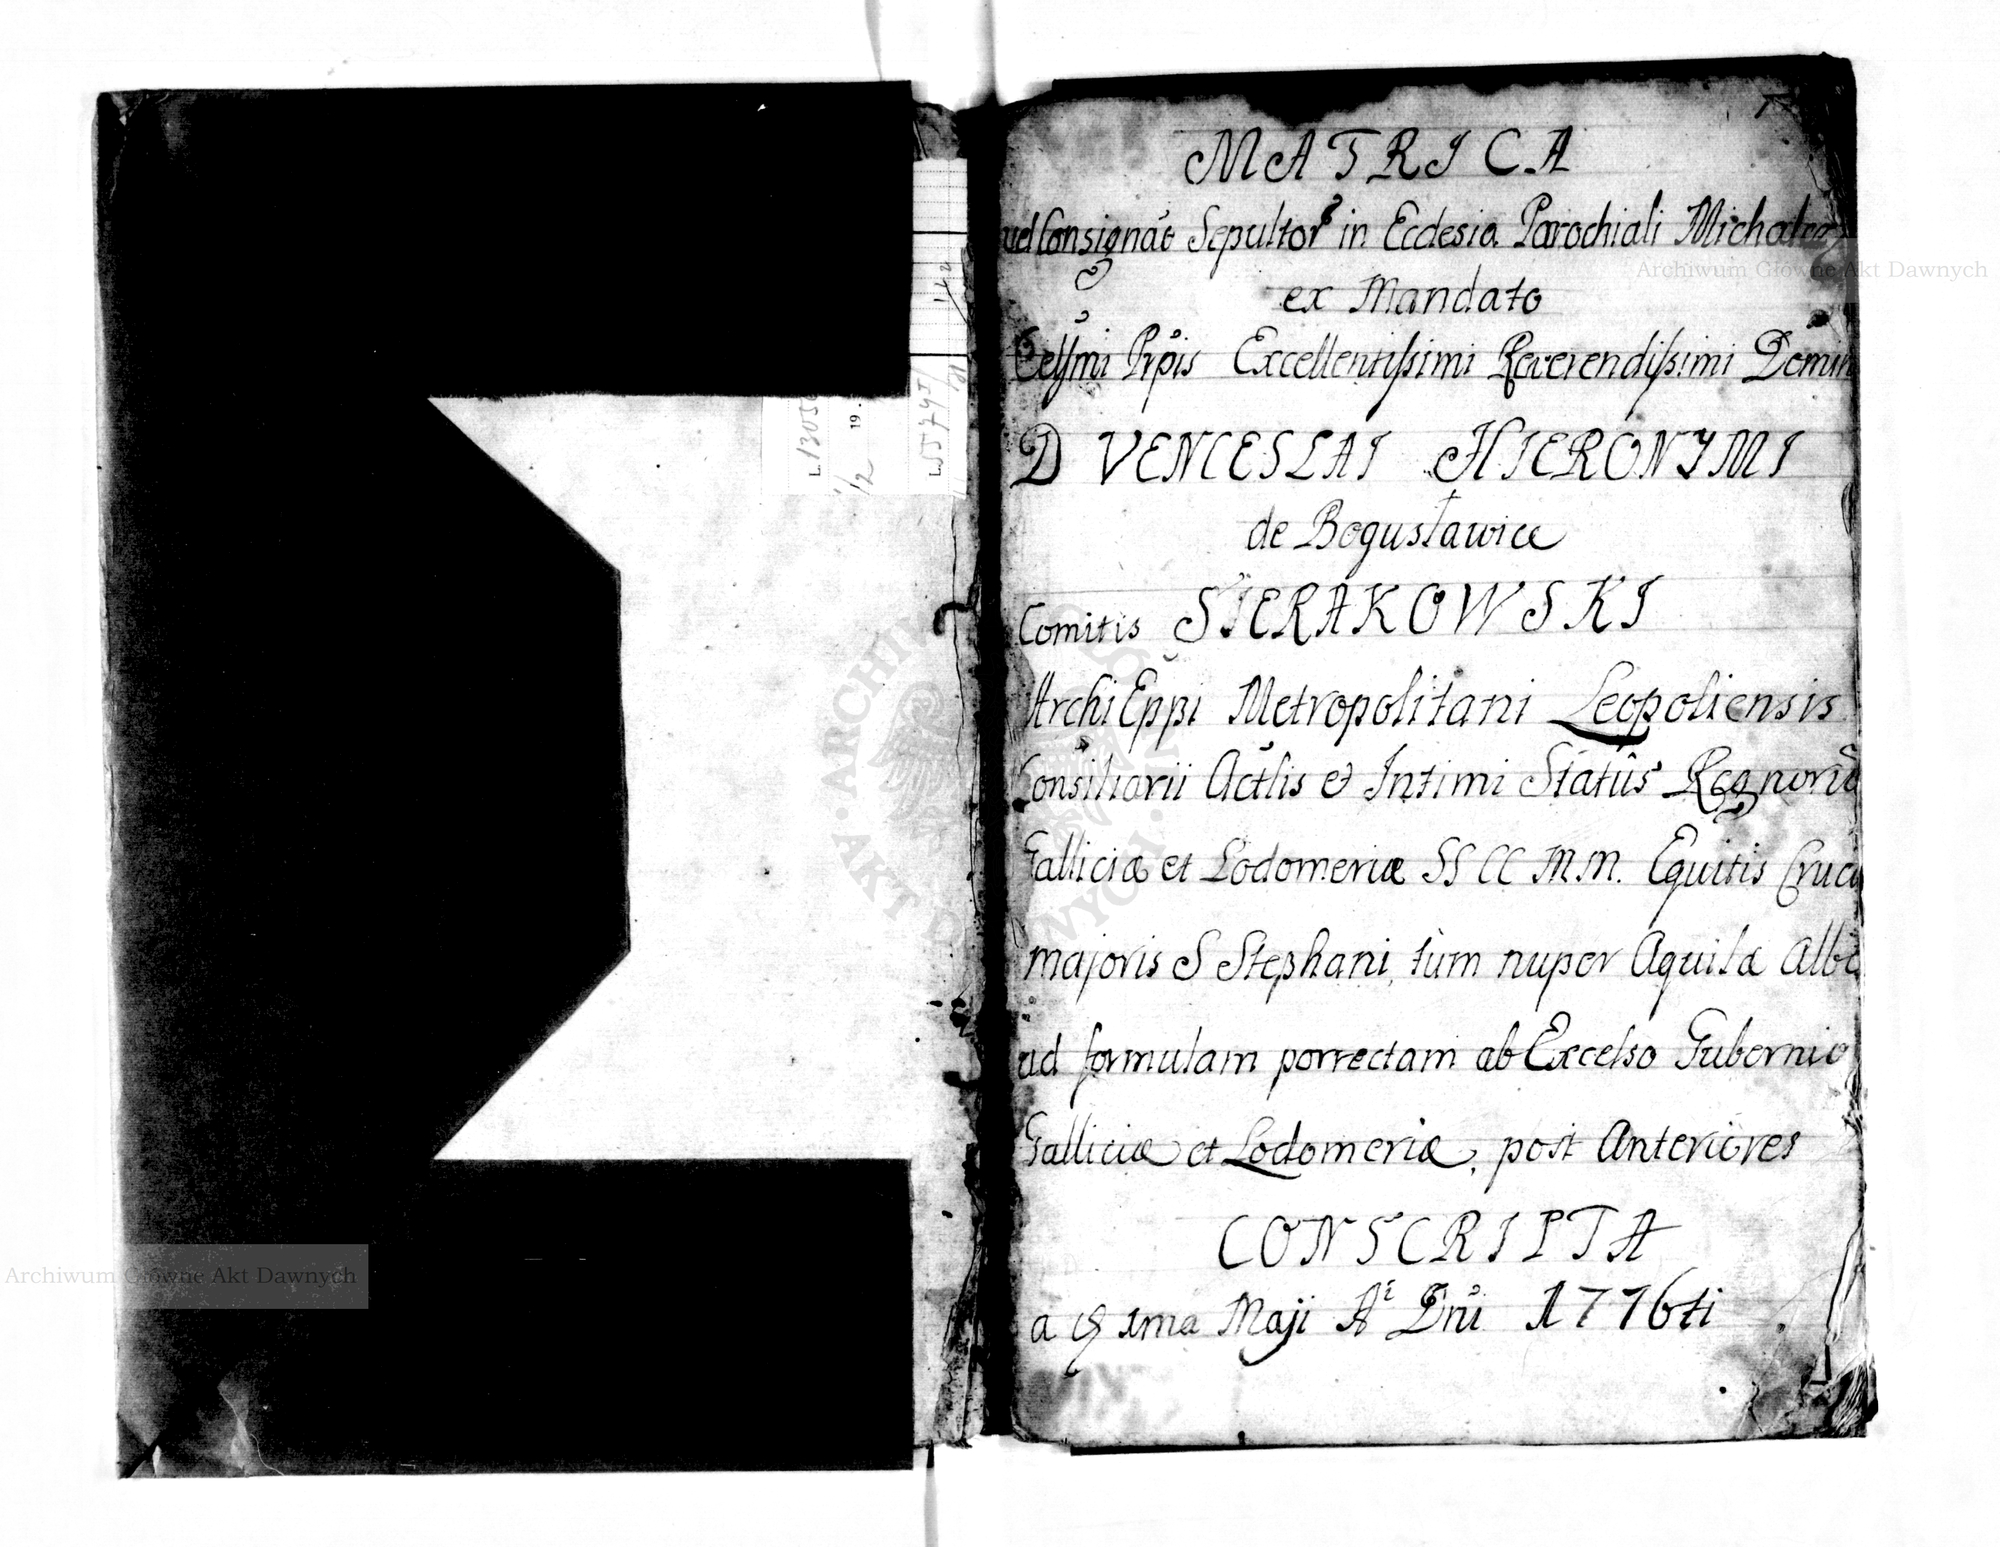 MATRICA
ad Consignãt Sepultor in Ecclesia Parochiali
ex Mandato
Celsmi Prpis Excellentissimi Reverendissimi Domin
D VENCESLAI HIERONYMI
de Bogusławice
Comitis SIERAKOWSKI
ArchiEppi Metropolitani Leopoliensis
Consiliarii Actlis et Intimi Statûs Regnorũ
Galliciæ et Lodomeriæ SS CC MM. Equitis Cruci
majoris S Stephani, tum nuper Aquilæ Albæ
ad formulam porrectam ab Excelso Gubernio
Galliciæ et Lodomeriæ, post Anteriores
CONSCRIPTA
a 1ma Maji Ai Dni 1776ti
19
1/2
Archiwum Główne Akt Dawnych
Archiwum Główne Akt Dawnych